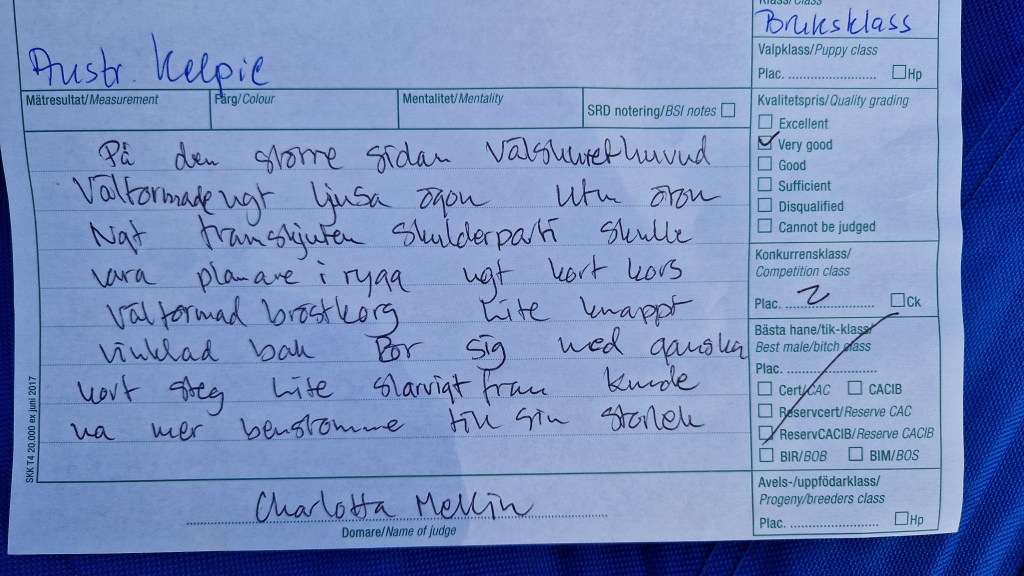 Klass/Class
Bruksklass
Austr. Kelpie
Valpklass/Puppy class
Plac. ........................ Hp
Mätresultat/Measurement
Färg/Colour
Mentalitet/Mentality
SRD notering/BSI notes
Kvalitetspris/Quality grading
Excellent
Very good
Good
Sufficient
Disqualified
Cannot be judged
På den större sidan Välskuret huvud
Välformade ngt ljusa ögon Utm öron
Ngt framskjuten skulderparti skulle
vara planare i rygg ngt kort kors
Välformad bröstkorg Lite knappt
vinklad bak Rör sig med ganska
kort steg Lite slarvigt fram Kunde
ha mer benstomme till sin storlek
Konkurrensklass/
Competition class
Plac. 2 Ck
Bästa hane/tik-klass/
Best male/bitch class
Plac. ........................
Cert/CAC CACIB
Reservcert/Reserve CAC
ReservCACIB/Reserve CACIB
BIR/BOB BIM/BOS
Avels-/uppfödarklass/
Progeny/breeders class
Plac. ........................ Hp
Charlotta Mellin
Domare/Name of judge
SKK T4 20.000 ex juni 2017